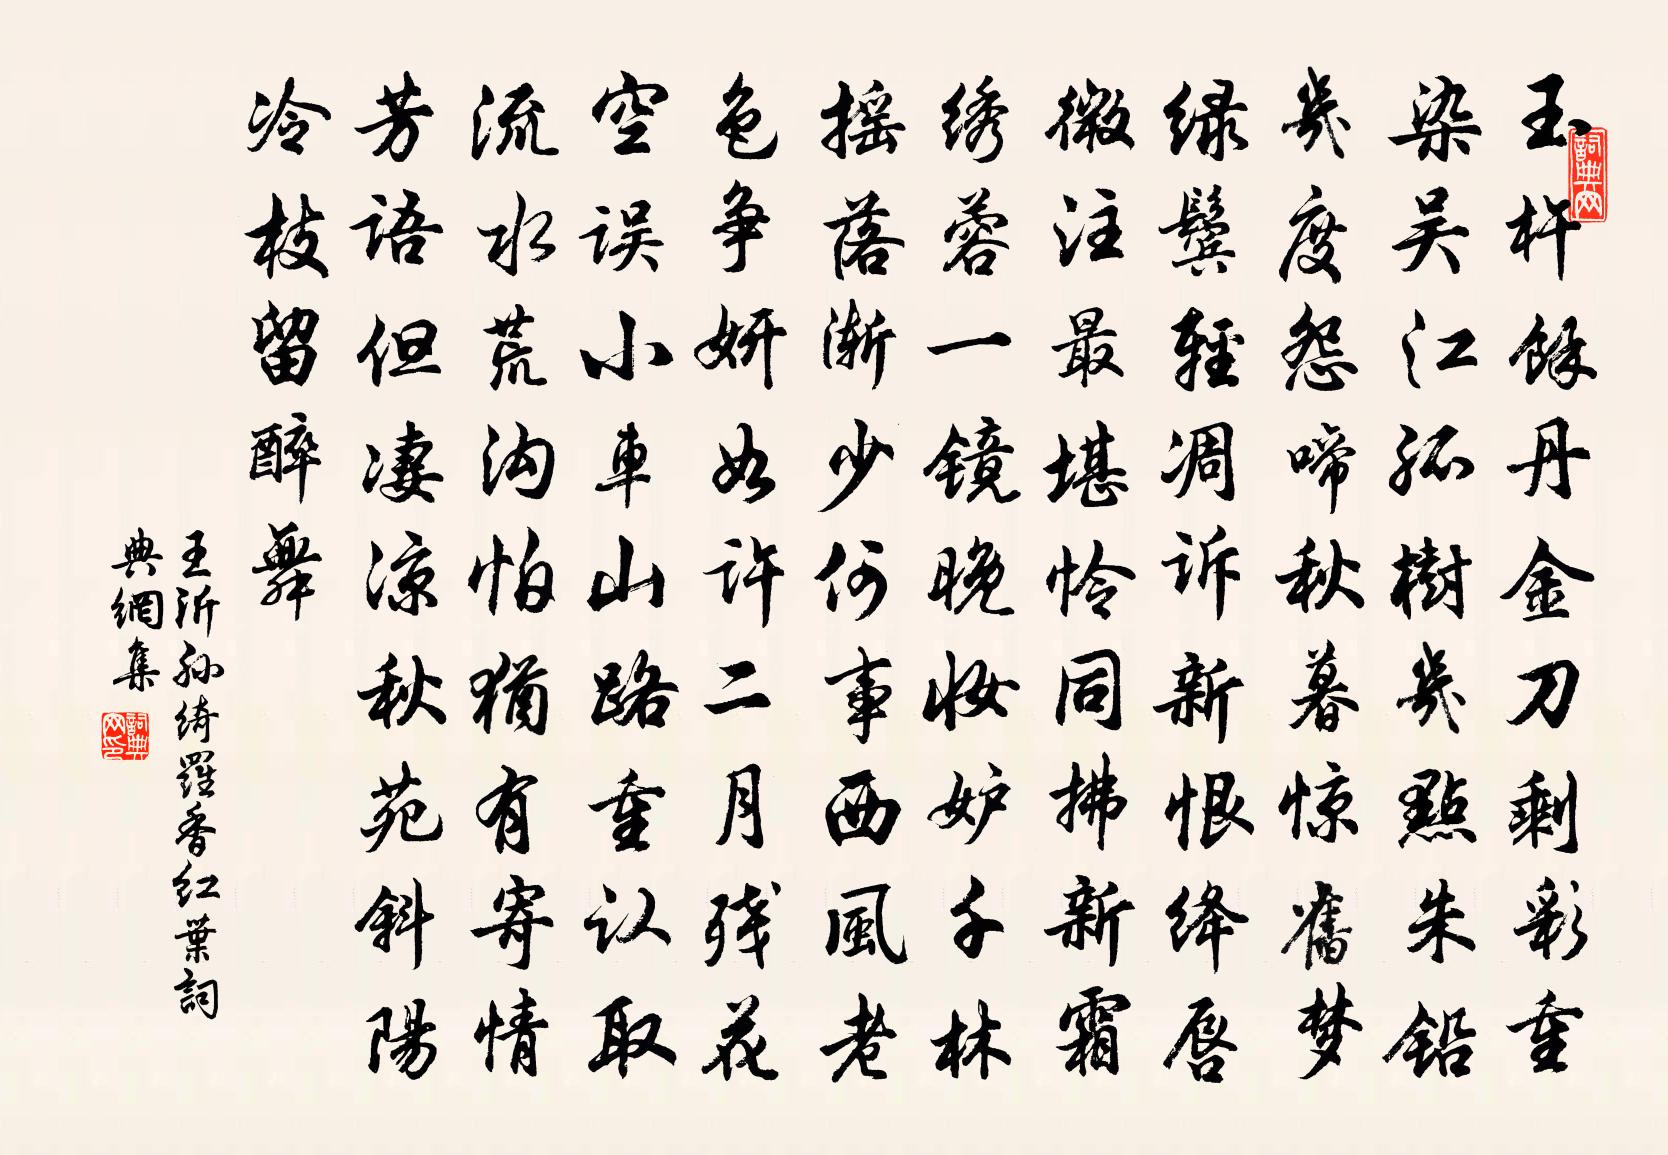 玉杵餘丹金刀剩彩重
染吴江孤樹幾點朱鉛
幾度怨啼秋暮惊舊梦
绿鬓輕凋诉新恨绛唇
微注最堪怜同拂新霜
绣蓉一镜晚妆妒千林
摇落渐少何事西風老
色争妍如许二月残花
空误小車山路重认取
流水荒沟怕犹有寄情
芳语但凄凉秋苑斜陽
冷枝留醉舞
王沂孙绮羅香红葉詞
典網集
詞典网
詞典网印